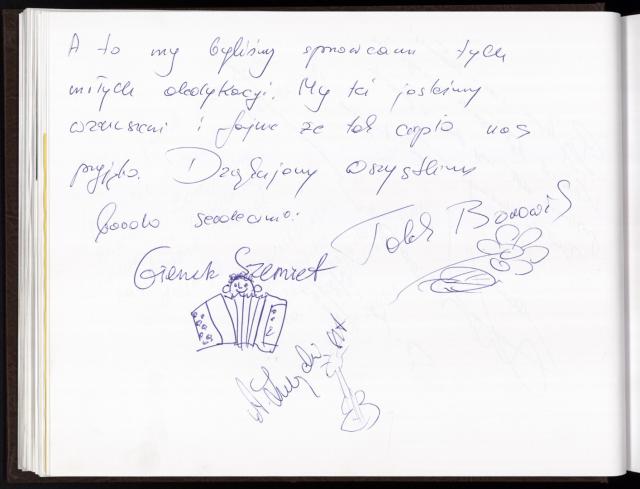 A to my byliśmy sprawcami tych
miłych okolykacji. My też jesteśmy
wzruszeni i fajnie że tak ciepło nas
przyjęto. Dziękujemy wszystkim
bardo serdecznie.
Gienek Szemiet